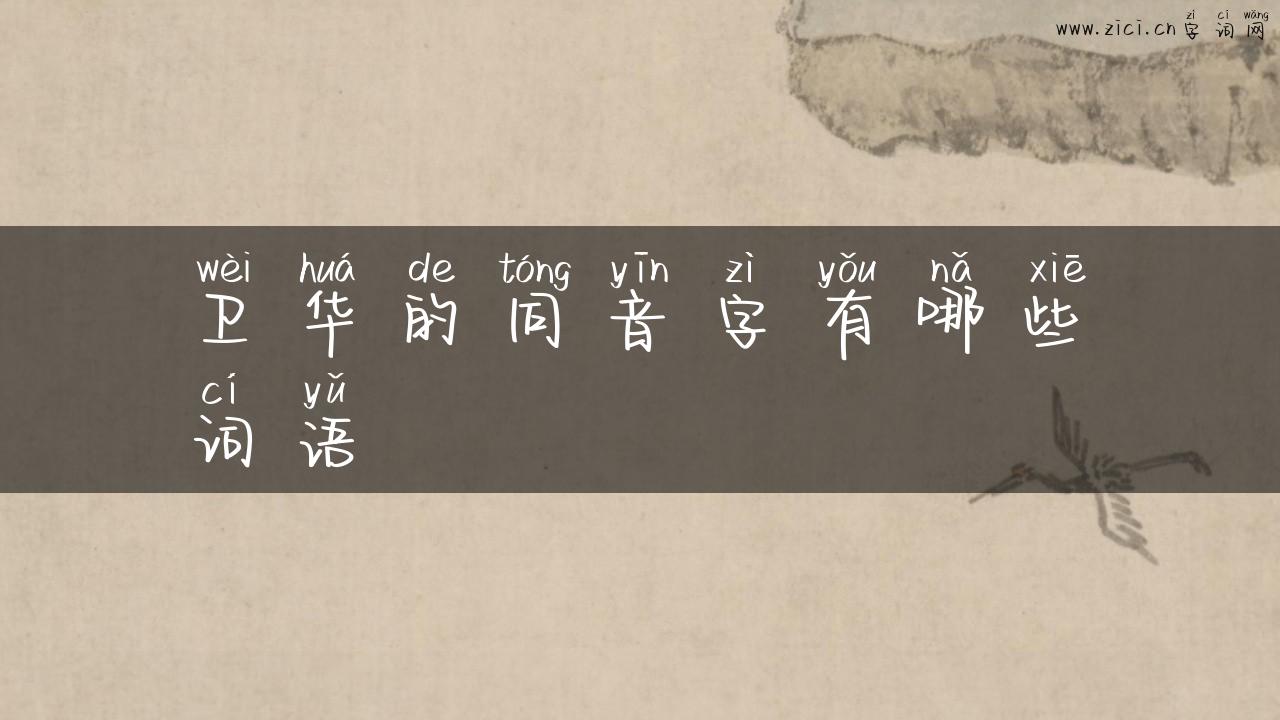 zì cí wǎng
www.zici.cn字词网
wèi huá de tóng yīn zì yǒu nǎ xiē
卫华的同音字有哪些
cí yǔ
词语